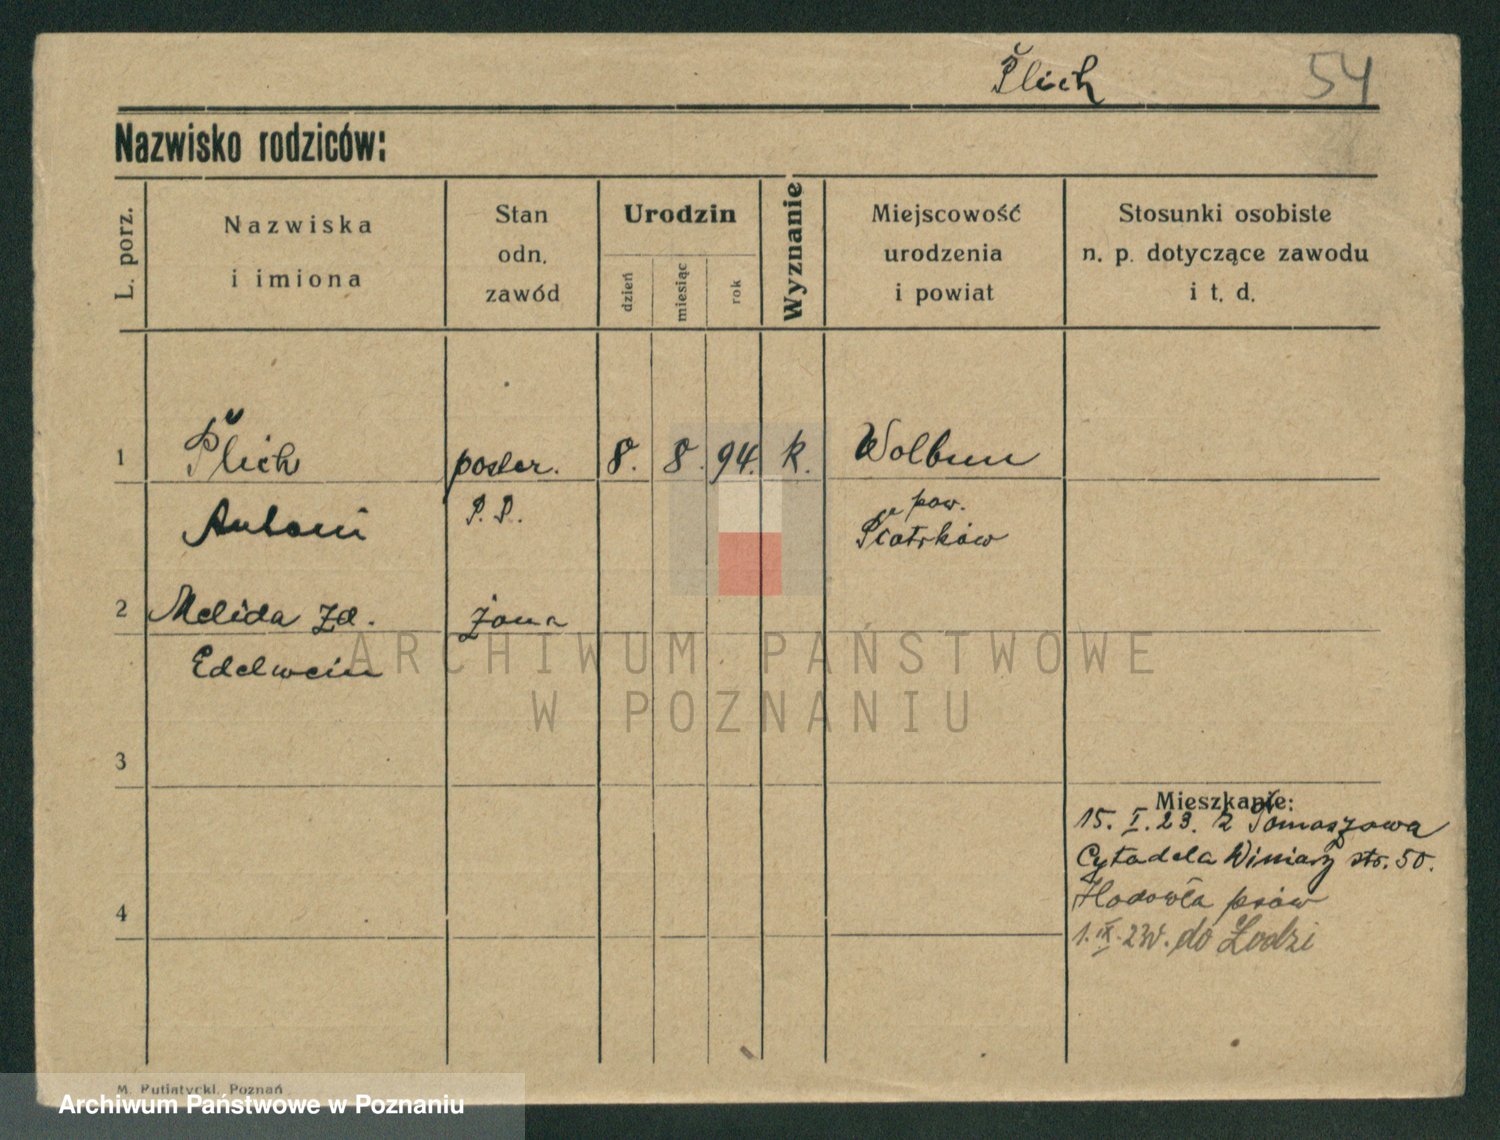 Plich 54
Nazwisko rodziców:
L. porz.
Nazwiska
i imiona
Stan
odn.
zawód
Urodzin
dzień
miesiąc
rok
Wyznanie
Miejscowość
urodzenia
i powiat
Stosunki osobiste
n. p. dotyczące zawodu
i t. d.
1 Plich poster. 8. 8. 94. k. Wolbum
Antoni P. P. pow.
Piotrków
2 Melida zd. żona
Edelwein
ARCHIWUM PAŃSTWOWE
W POZNANIU
3
Mieszkanie:
15. I. 23. z Tomaszowa
Cytadela Winiary str. 50.
4 Hodowla psów
do Łodzi
M. Putiatycki, Poznań
Archiwum Państwowe w Poznaniu